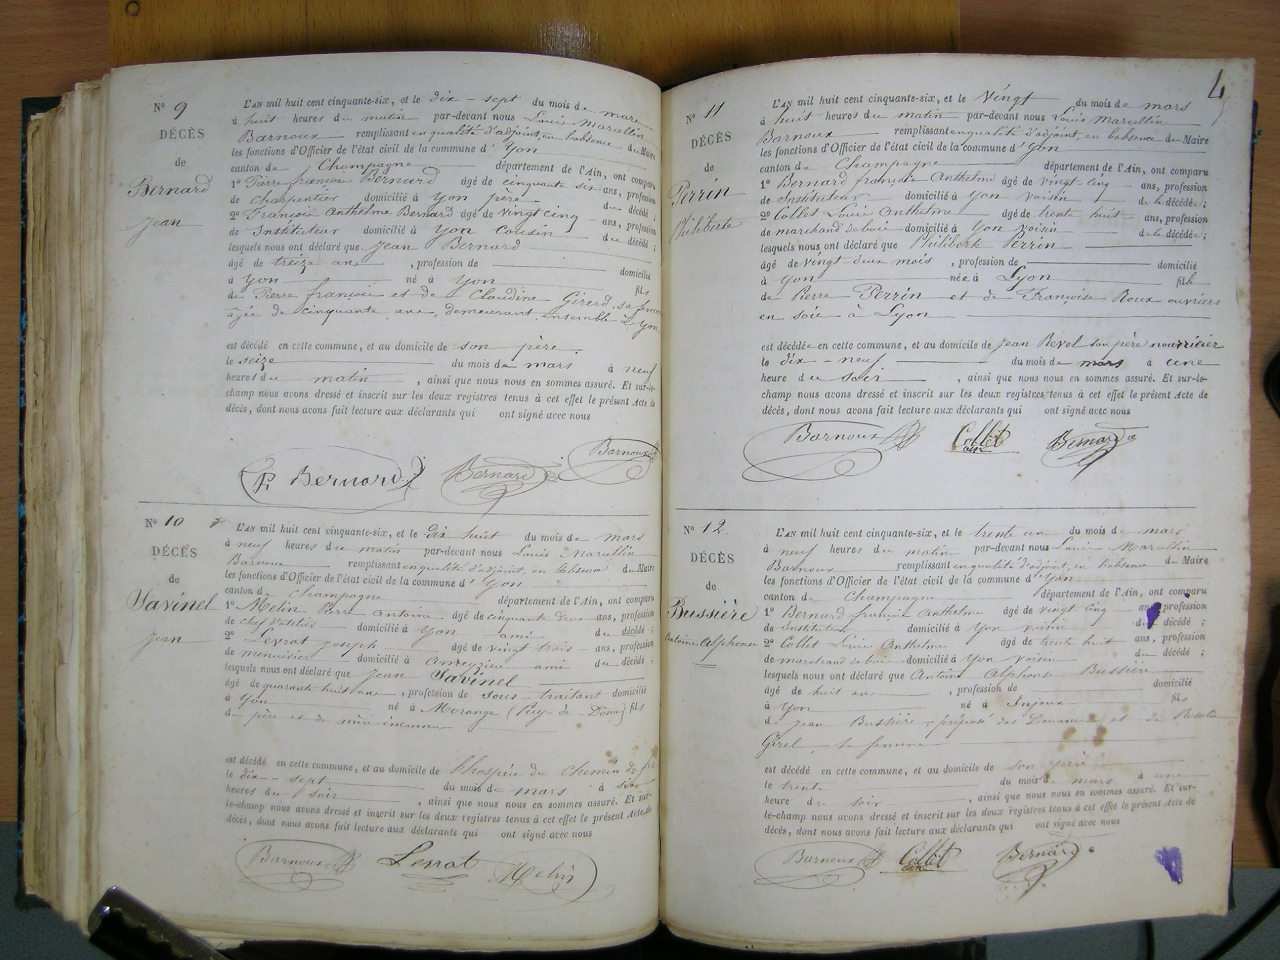 N° 9
DÉCÈS
de
Bernard
Jean
L'AN mil huit cent cinquante-six, et le dix-sept du mois de mars
à huit heures du matin par-devant nous Louis Marcellin
Barnoux remplissant en qualité d'adjoint, en l'absence du Maire
les fonctions d'Officier de l'état civil de la commune d'Yon
canton de Champagne département de l'Ain, ont comparu
1° Pierre françois Bernard âgé de cinquante six ans, profession
de Charpentier domicilié à Yon père du décédé ;
2° François Anthelme Bernard âgé de vingt cinq ans, profession
de Instituteur domicilié à Yon Cousin du décédé ;
lesquels nous ont déclaré que Jean Bernard
âgé de treize ans, profession de domicilié
à Yon né à Yon fils
de Pierre françois et de Claudine Girerd, sa femme
âgée de cinquante ans, demeurant ensemble à Yon
est décédé en cette commune, et au domicile de son père
le seize du mois de mars à neuf
heures du matin, ainsi que nous nous en sommes assuré. Et sur-le-
champ nous avons dressé et inscrit sur les deux registres tenus à cet effet le présent Acte de
décès, dont nous avons fait lecture aux déclarants qui ont signé avec nous
P. Bernard Bernard Barnoux
N° 10
DÉCÈS
de
Savinel
Jean
L'AN mil huit cent cinquante-six, et le dix huit du mois de mars
à neuf heures du matin par-devant nous Louis Marcellin
Barnoux remplissant en qualité d'adjoint, en l'absence du Maire
les fonctions d'Officier de l'état civil de la commune d'Yon
canton de Champagne département de l'Ain, ont comparu
1° Melin Pierre Antoine âgé de cinquante deux ans, profession
de Chef domicilié à Yon ami du décédé ;
2° Levrat Joseph âgé de vingt trois ans, profession
de menuisier domicilié à ami du décédé ;
lesquels nous ont déclaré que Jean Savinel
âgé de quarante huit ans, profession de Sous-traitant domicilié
à Yon né à Morange (Puy-de-Dôme) fils
de père et de mère inconnus
est décédé en cette commune, et au domicile de l'hospice du Chemin de fer
le dix-sept du mois de mars à six
heures du soir, ainsi que nous nous en sommes assuré. Et sur-
le-champ nous avons dressé et inscrit sur les deux registres tenus à cet effet le présent Acte de
décès, dont nous avons fait lecture aux déclarants qui ont signé avec nous
Barnoux Levrat Melin
4
N° 11
DÉCÈS
de
Perrin
Philiberte
L'AN mil huit cent cinquante-six, et le Vingt du mois de mars
à huit heures du matin par-devant nous Louis Marcellin
Barnoux remplissant en qualité d'adjoint, en l'absence du Maire
les fonctions d'Officier de l'état civil de la commune d'Yon
canton de Champagne département de l'Ain, ont comparu
1° Bernard françois Anthelme âgé de vingt cinq ans, profession
de Instituteur domicilié à Yon voisin de la décédée ;
2° Collet Louis Anthelme âgé de trente huit ans, profession
de marchand de bois domicilié à Yon voisin de la décédée ;
lesquels nous ont déclaré que Philiberte Perrin
âgé de vingt deux mois, profession de domicilié
à Yon née à Lyon fille
de Pierre Perrin et de Françoise Roux ouvriers
en soie à Lyon
est décédée en cette commune, et au domicile de Jean Revol son père nourricier
le dix-neuf du mois de mars à une
heure du soir, ainsi que nous nous en sommes assuré. Et sur-le-
champ nous avons dressé et inscrit sur les deux registres tenus à cet effet le présent Acte de
décès, dont nous avons fait lecture aux déclarants qui ont signé avec nous
Barnoux Collet Bernard
N° 12
DÉCÈS
de
Bussière
Antoine Alphonse
L'AN mil huit cent cinquante-six, et le trente un du mois de mars
à neuf heures du matin par-devant nous Louis Marcellin
Barnoux remplissant en qualité d'adjoint, en l'absence du Maire
les fonctions d'Officier de l'état civil de la commune d'Yon
canton de Champagne département de l'Ain, ont comparu
1° Bernard françois Anthelme âgé de vingt cinq ans, profession
de Instituteur domicilié à Yon voisin du décédé ;
2° Collet Louis Anthelme âgé de trente huit ans, profession
de marchand de bois domicilié à Yon voisin du décédé ;
lesquels nous ont déclaré que Antoine Alphonse Bussière
âgé de huit ans, profession de domicilié
à Yon né à Injoux fils
de Jean Bussière, préposé des Douanes et de
Girel, sa femme
est décédé en cette commune, et au domicile de son père
le trente du mois de mars à une
heure du soir, ainsi que nous nous en sommes assuré. Et sur-
le-champ nous avons dressé et inscrit sur les deux registres tenus à cet effet le présent Acte de
décès, dont nous avons fait lecture aux déclarants qui ont signé avec nous
Barnoux Collet Bernard